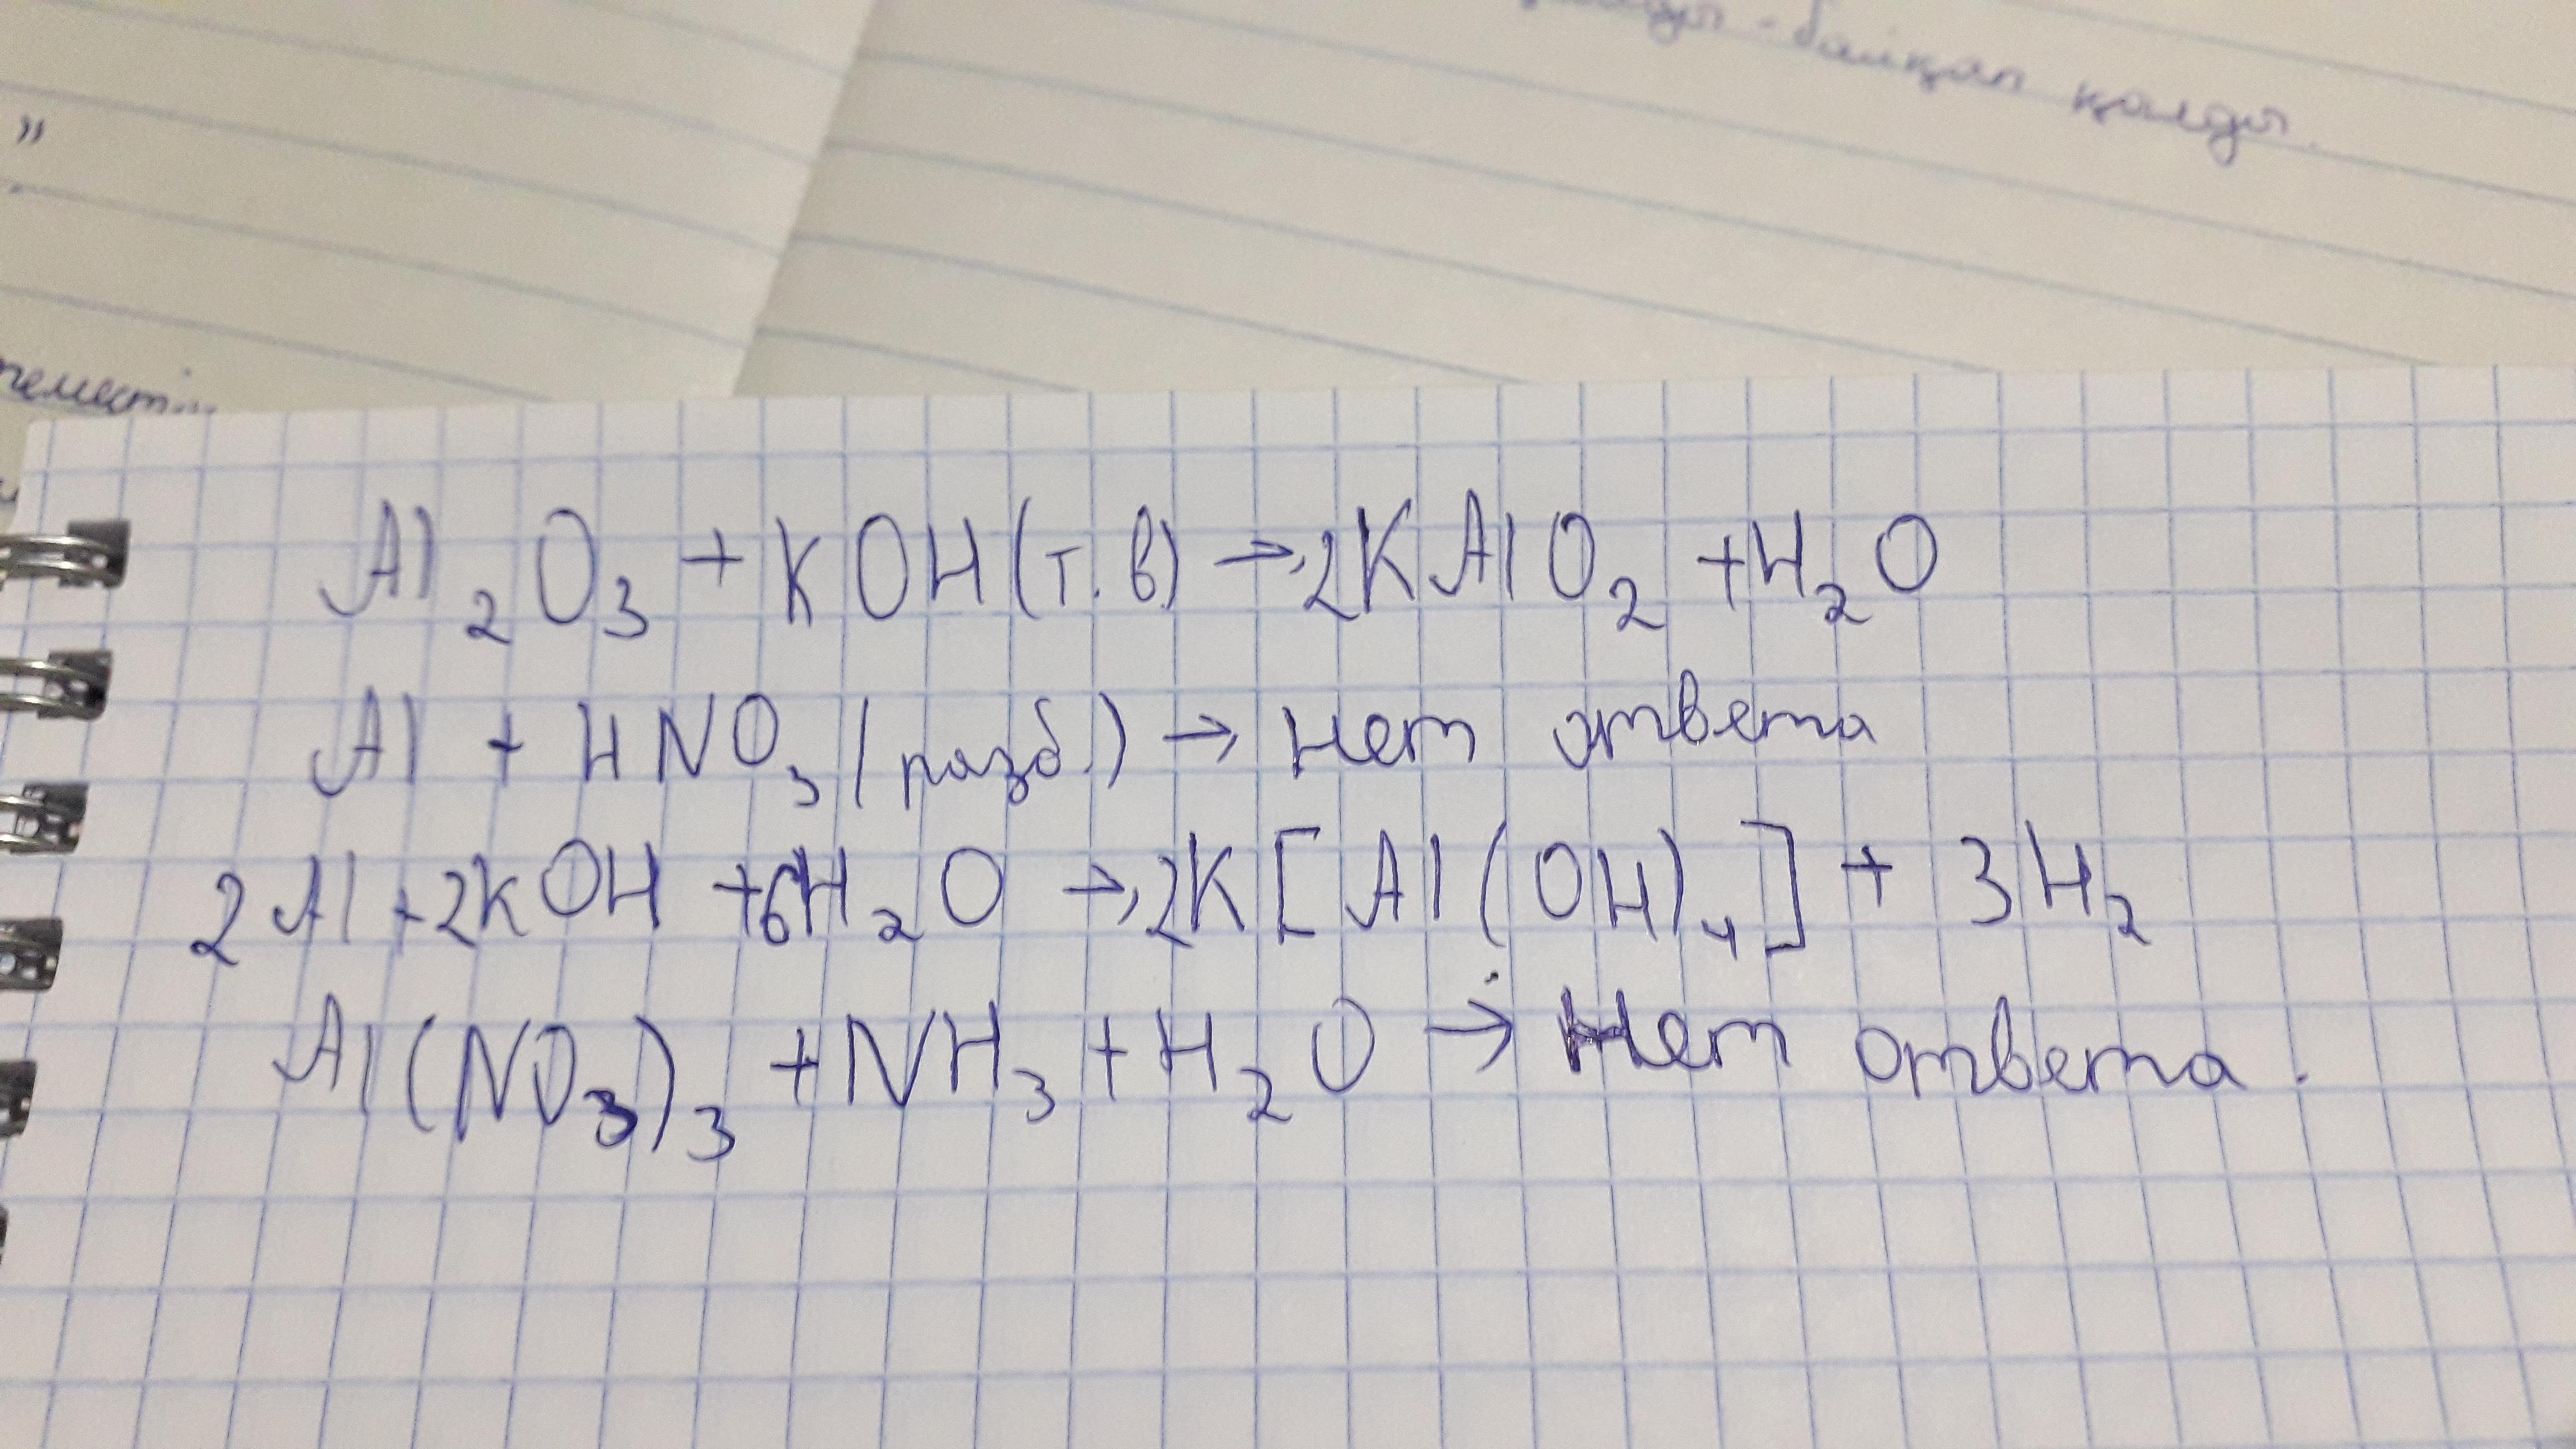 - байқап қалды.
"
Al₂O₃ + KOH (т.в) → 2KAlO₂ + H₂O
Al + HNO₃ (разб.) → Нет ответа
2Al + 2KOH + 6H₂O → 2K[Al(OH)₄] + 3H₂
Al(NO₃)₃ + NH₃ + H₂O → Нет ответа.